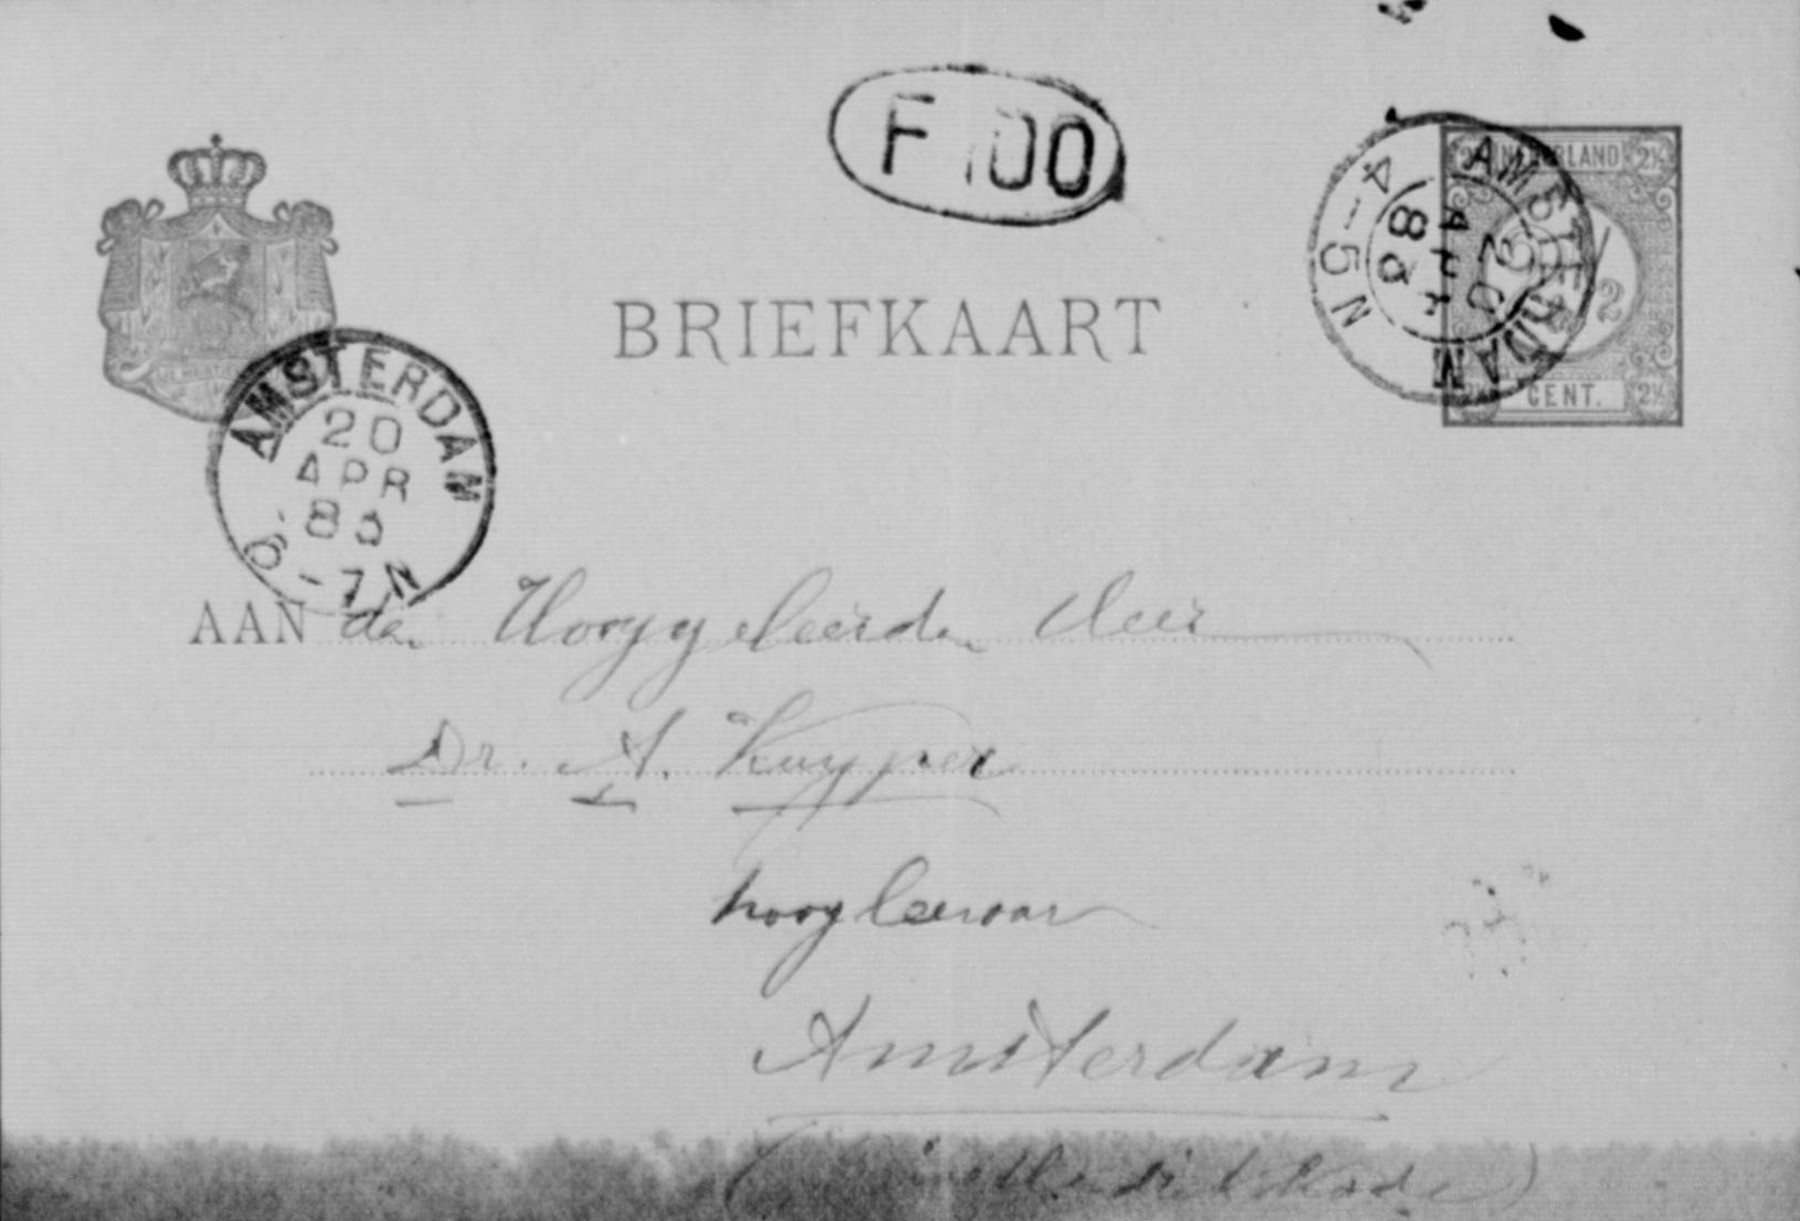 F 100
NEDERLAND
2½ 2½
AMSTERDAM
20
APR
83
4-5 N
1/2
CENT.
2½
BRIEFKAART
AMSTERDAM
20
APR
83
6-7 N
AAN den Hooggeleerden Heer
Dr. A. Kuyper
hoogleeraar
Amsterdam